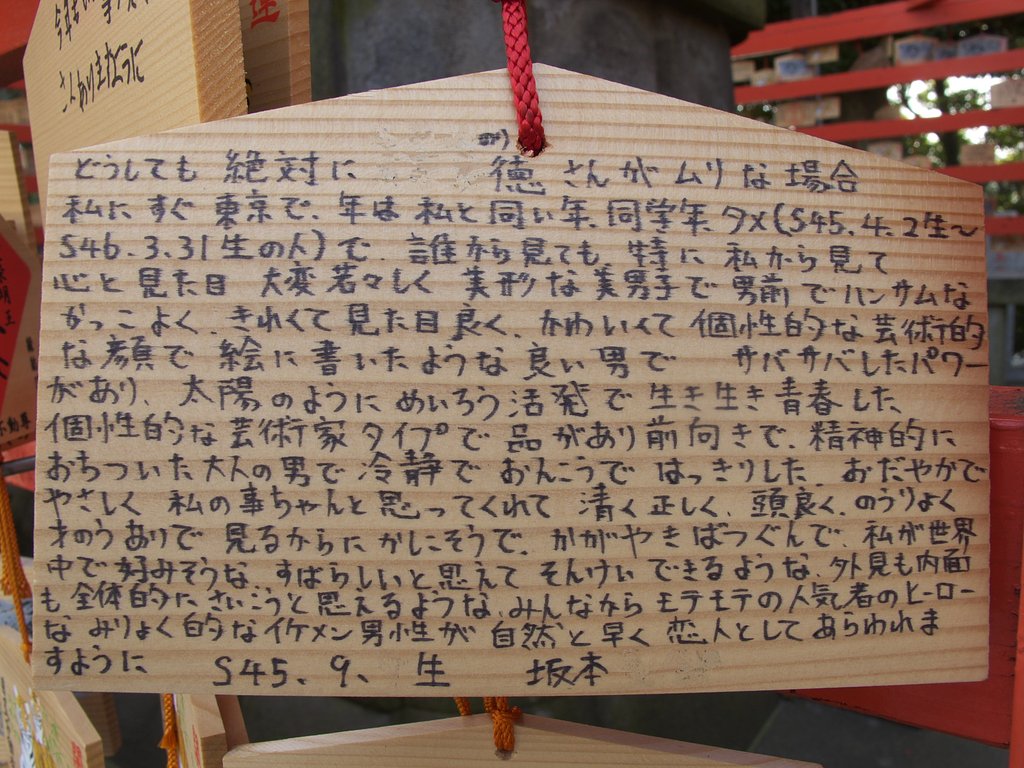 今年も
さんありますように
どうしても 絶対に 徳さんが ムリな場合
私に すぐ 東京で、年は 私と同い年、同学年、タメ(S45.4.2生〜
S46.3.31生の人)で、誰から見ても、特に 私から見て
心と見た目 大変若々しく 美形な美男子で男前でハンサムな
かっこよく、きれくて見た目良く、かわいくて 個性的な芸術的
な顔で 絵に書いたような良い男で サバサバしたパワー
があり、太陽のように めいろう活発で生き生き青春した、
個性的な芸術家タイプで 品があり前向きで、精神的に
おちついた大人の男で冷静で おんこうで はっきりした、おだやかで
やさしく 私の事ちゃんと思ってくれて 清く正しく、頭良く、のうりょく
才のうありで 見るからに かしこそうで、かがやきばつぐんで、私が世界
中で好みそうな、すばらしいと思えて そんけいできるような、外見も内面
も全体的に、さいこうと思えるような、みんなからモテモテの人気者のヒーロー
な みりょく的なイケメン男性が 自然と早く 恋人としてあらわれま
すように S45.9、生 坂本